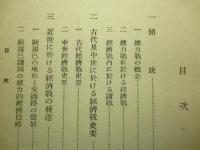 目次
一 緒説
一 總力戰の概念
二 總力戰に於ける經濟戰
三 經濟戰內に於ける諸戰
二 古代及中世に於ける經濟戰史要
一 古代經濟戰史要
二 中世經濟戰史要
三 近世に於ける經濟戰の發達
一 歐羅巴の地形と交通路の發展
二 歐羅巴諸國の總力的經濟侵略
目次